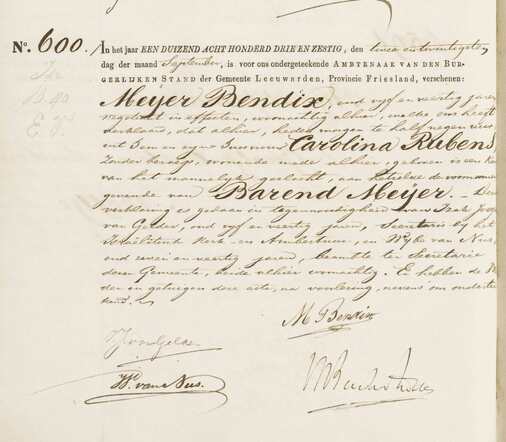 No. 600.
In het jaar EEN DUIZEND ACHT HONDERD DRIE EN ZESTIG, den twee en twintigsten
dag der maand September, is voor ons ondergeteekende AMBTENAAR VAN DEN BUR-
GERLIJKEN STAND der Gemeente LEEUWARDEN, Provincie FRIESLAND, verschenen:
Meijer Bendix, oud vyf en veertig jaren,
in effecten, woonachtig alhier, welke ons heeft
verklaard, dat alhier, heden morgen te half negen ure,
uit hem en zyne huisvrouw Carolina Rubens
zonder beroep, wonende mede alhier, geboren is een kind
van het mannelyk geslacht, aan hetwelk de voornaam
gevende van Barend Meijer. Deze
verklaring is gedaan in tegenwoordigheid van Izak
van Gelder, oud vyf en veertig jaren, Secretaris by het
Israëlitisch Kerk- en Armbestuur, en Wybe van Nus,
oud en veertig jaren, beambte ter Secretarie
dezer Gemeente, beide alhier woonachtig. En hebben de
den en getuigen deze acte, na voorlezing, nevens ons onderte-
kend.
M Bendix
IJ van Gelder
W. van Nus.